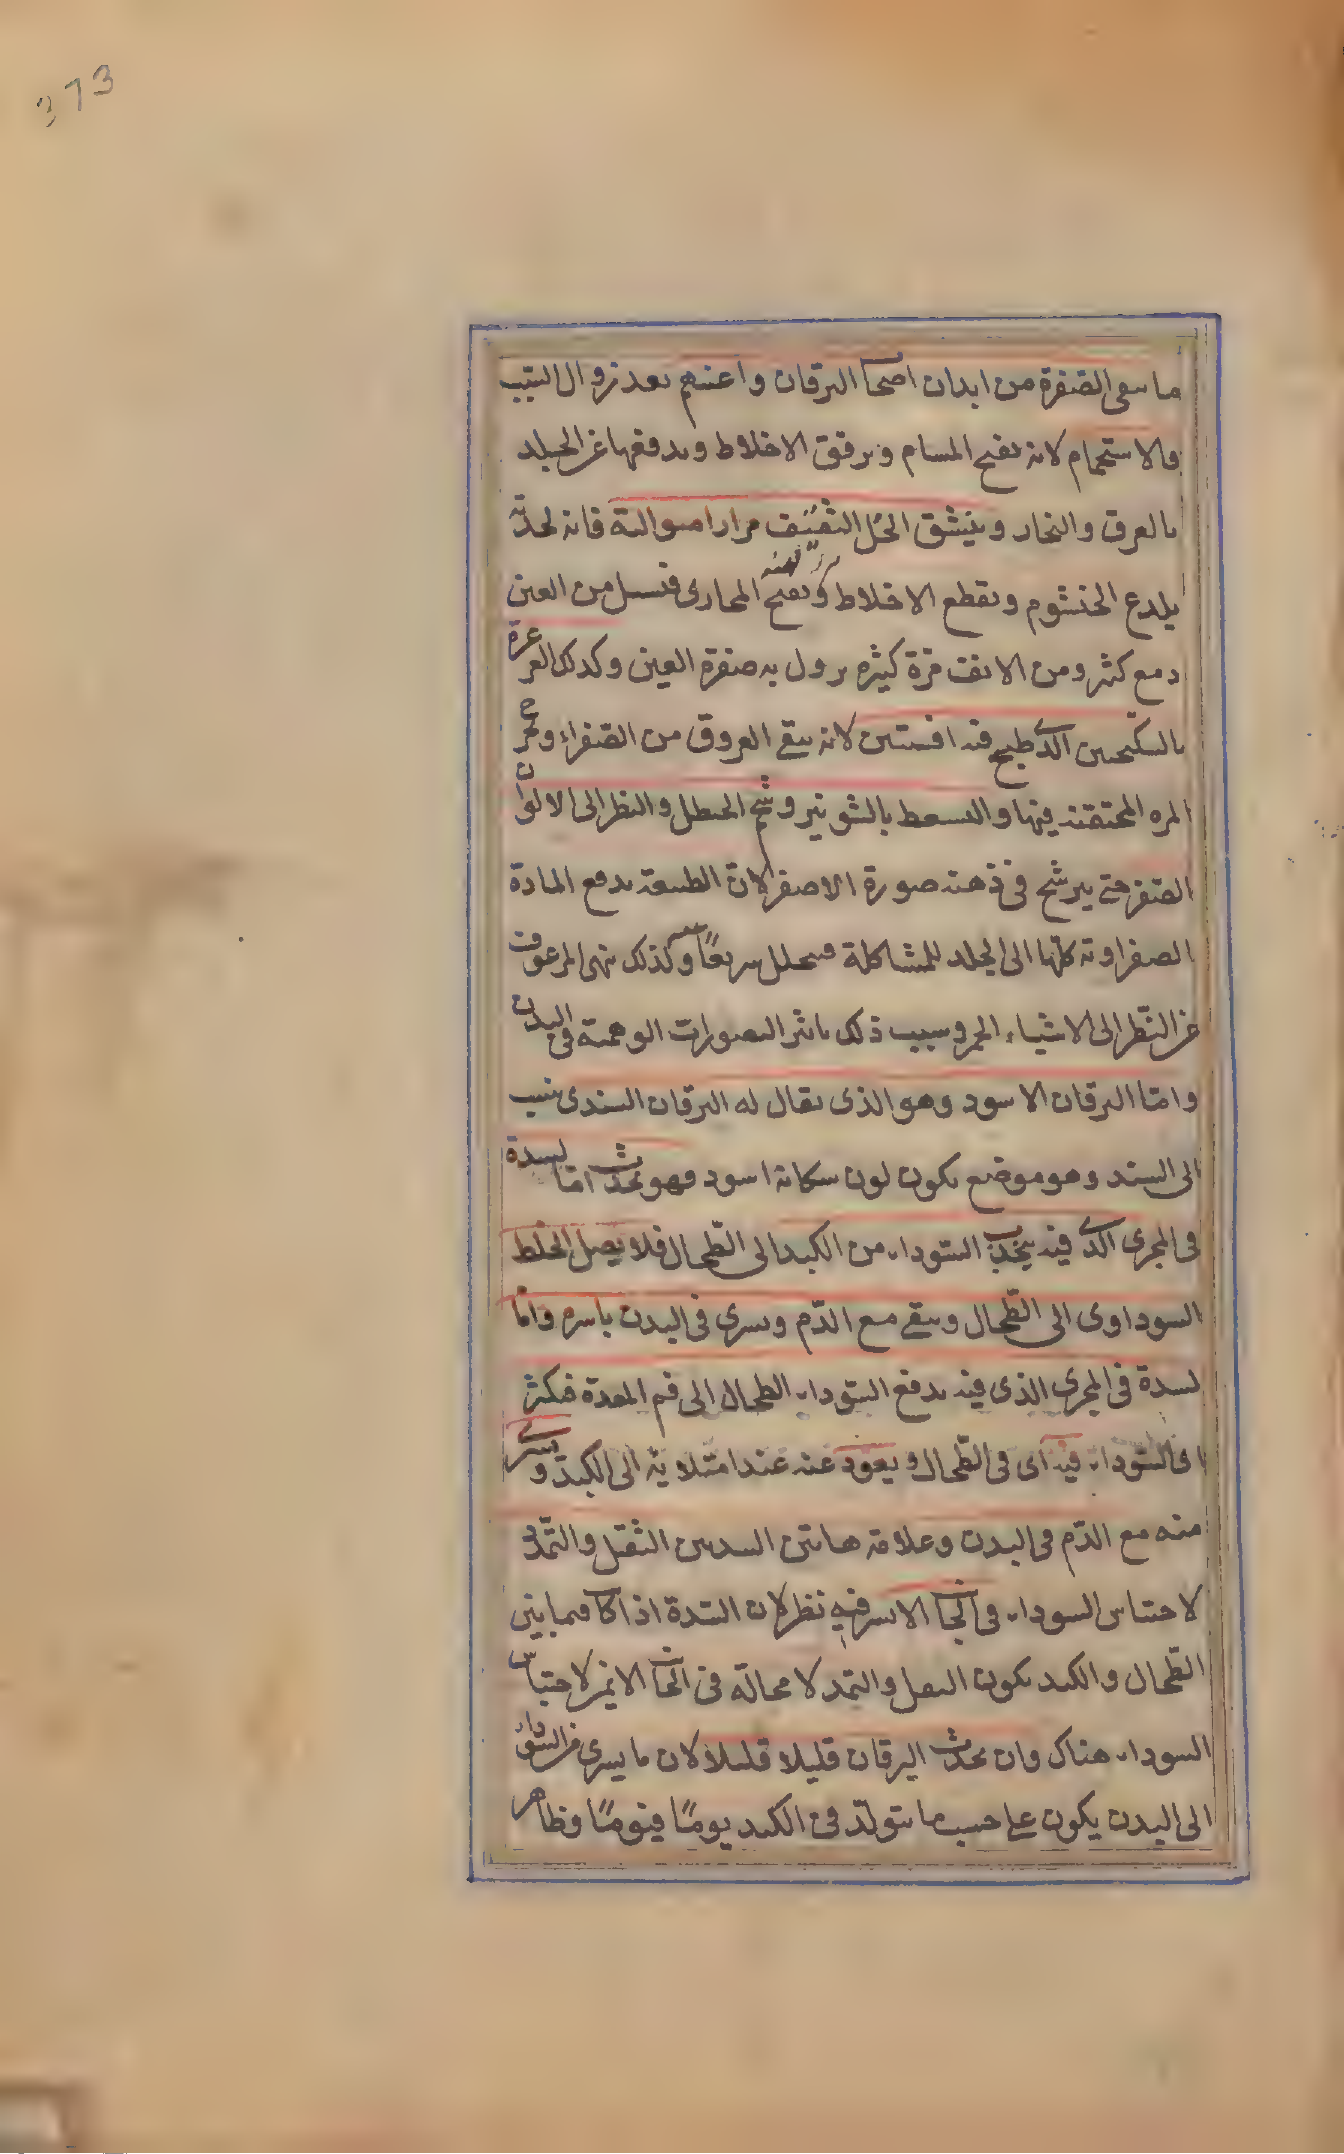 373
ما بقى الصفرة من ابدان اصحاب اليرقان واعينهم بعد زوال السبب
والاستحمام لانه يفتح المسام ويرقق الاخلاط ويدفعها عن الجلد
بالعرق والبخار وينشق الخل الثقيف مرارا متوالية فانه لحدته
يلدع الخيشوم ويقطع الاخلاط ويفتح المجارى فيسيل من العين
دمع كثير ومن الانف مرة كثيره يزول به صفرة العين وكذلك الغرغرة
بالسكنجبين الذى طبخ فيه افسنتين لانه ينقى العروق من الصفراء ويخرج
المره المحتقنه فيها والسعط بالشونيز وشحم الحنظل والنظر الى الالوان
الصفر حتى يترشح فى ذهنه صورة الاصفر لان الطبيعة يدفع المادة
الصفراوية كلها الى الجلد للمشاكلة فيتحلل سريعًا وكذلك نهى المرعوف
عن النّظر الى الاشياء الحمر وسبب ذلك تاثير التصورات الوهمية فى البدن
وامّا اليرقان الاسود وهو الذى يقال له اليرقان السندى ينسب
الى السند وهو موضع يكون لون سكانه اسود فهو يحدث امّا لسدة
فى المجرى الذى فيه ينجذب السّوداء من الكبد الى الطّحال فلا يصل الخلط
السوداوى الى الطّحال ويبقى مع الدّم ويسرى فى البدن باسره وامّا
لسدة فى المجرى الذى فيه يدفع السّوداء الطحال الى فم المعدة فيكثر
السّوداء فيه اى فى الطّحال ويعود عنه عند امتلايه الى الكبد ويسرى
منه مع الدّم فى البدن وعلامة هاتين السدتين الثقل والتّمدّد
لاحتباس السوداء فى الجانب الايسر فيه نظر لان السّدة اذا كانت فيما بين
الطّحال والكبد يكون الثقل والتمدد لا محالة فى الجانب الايمن لاحتباس
السوداء هناك وان يحدث اليرقان قليلا قليلا لان ما يسرى من السّوداء
الى البدن يكون على حسب ما يتولّد فى الكبد يومًا فيومًا وظاهر